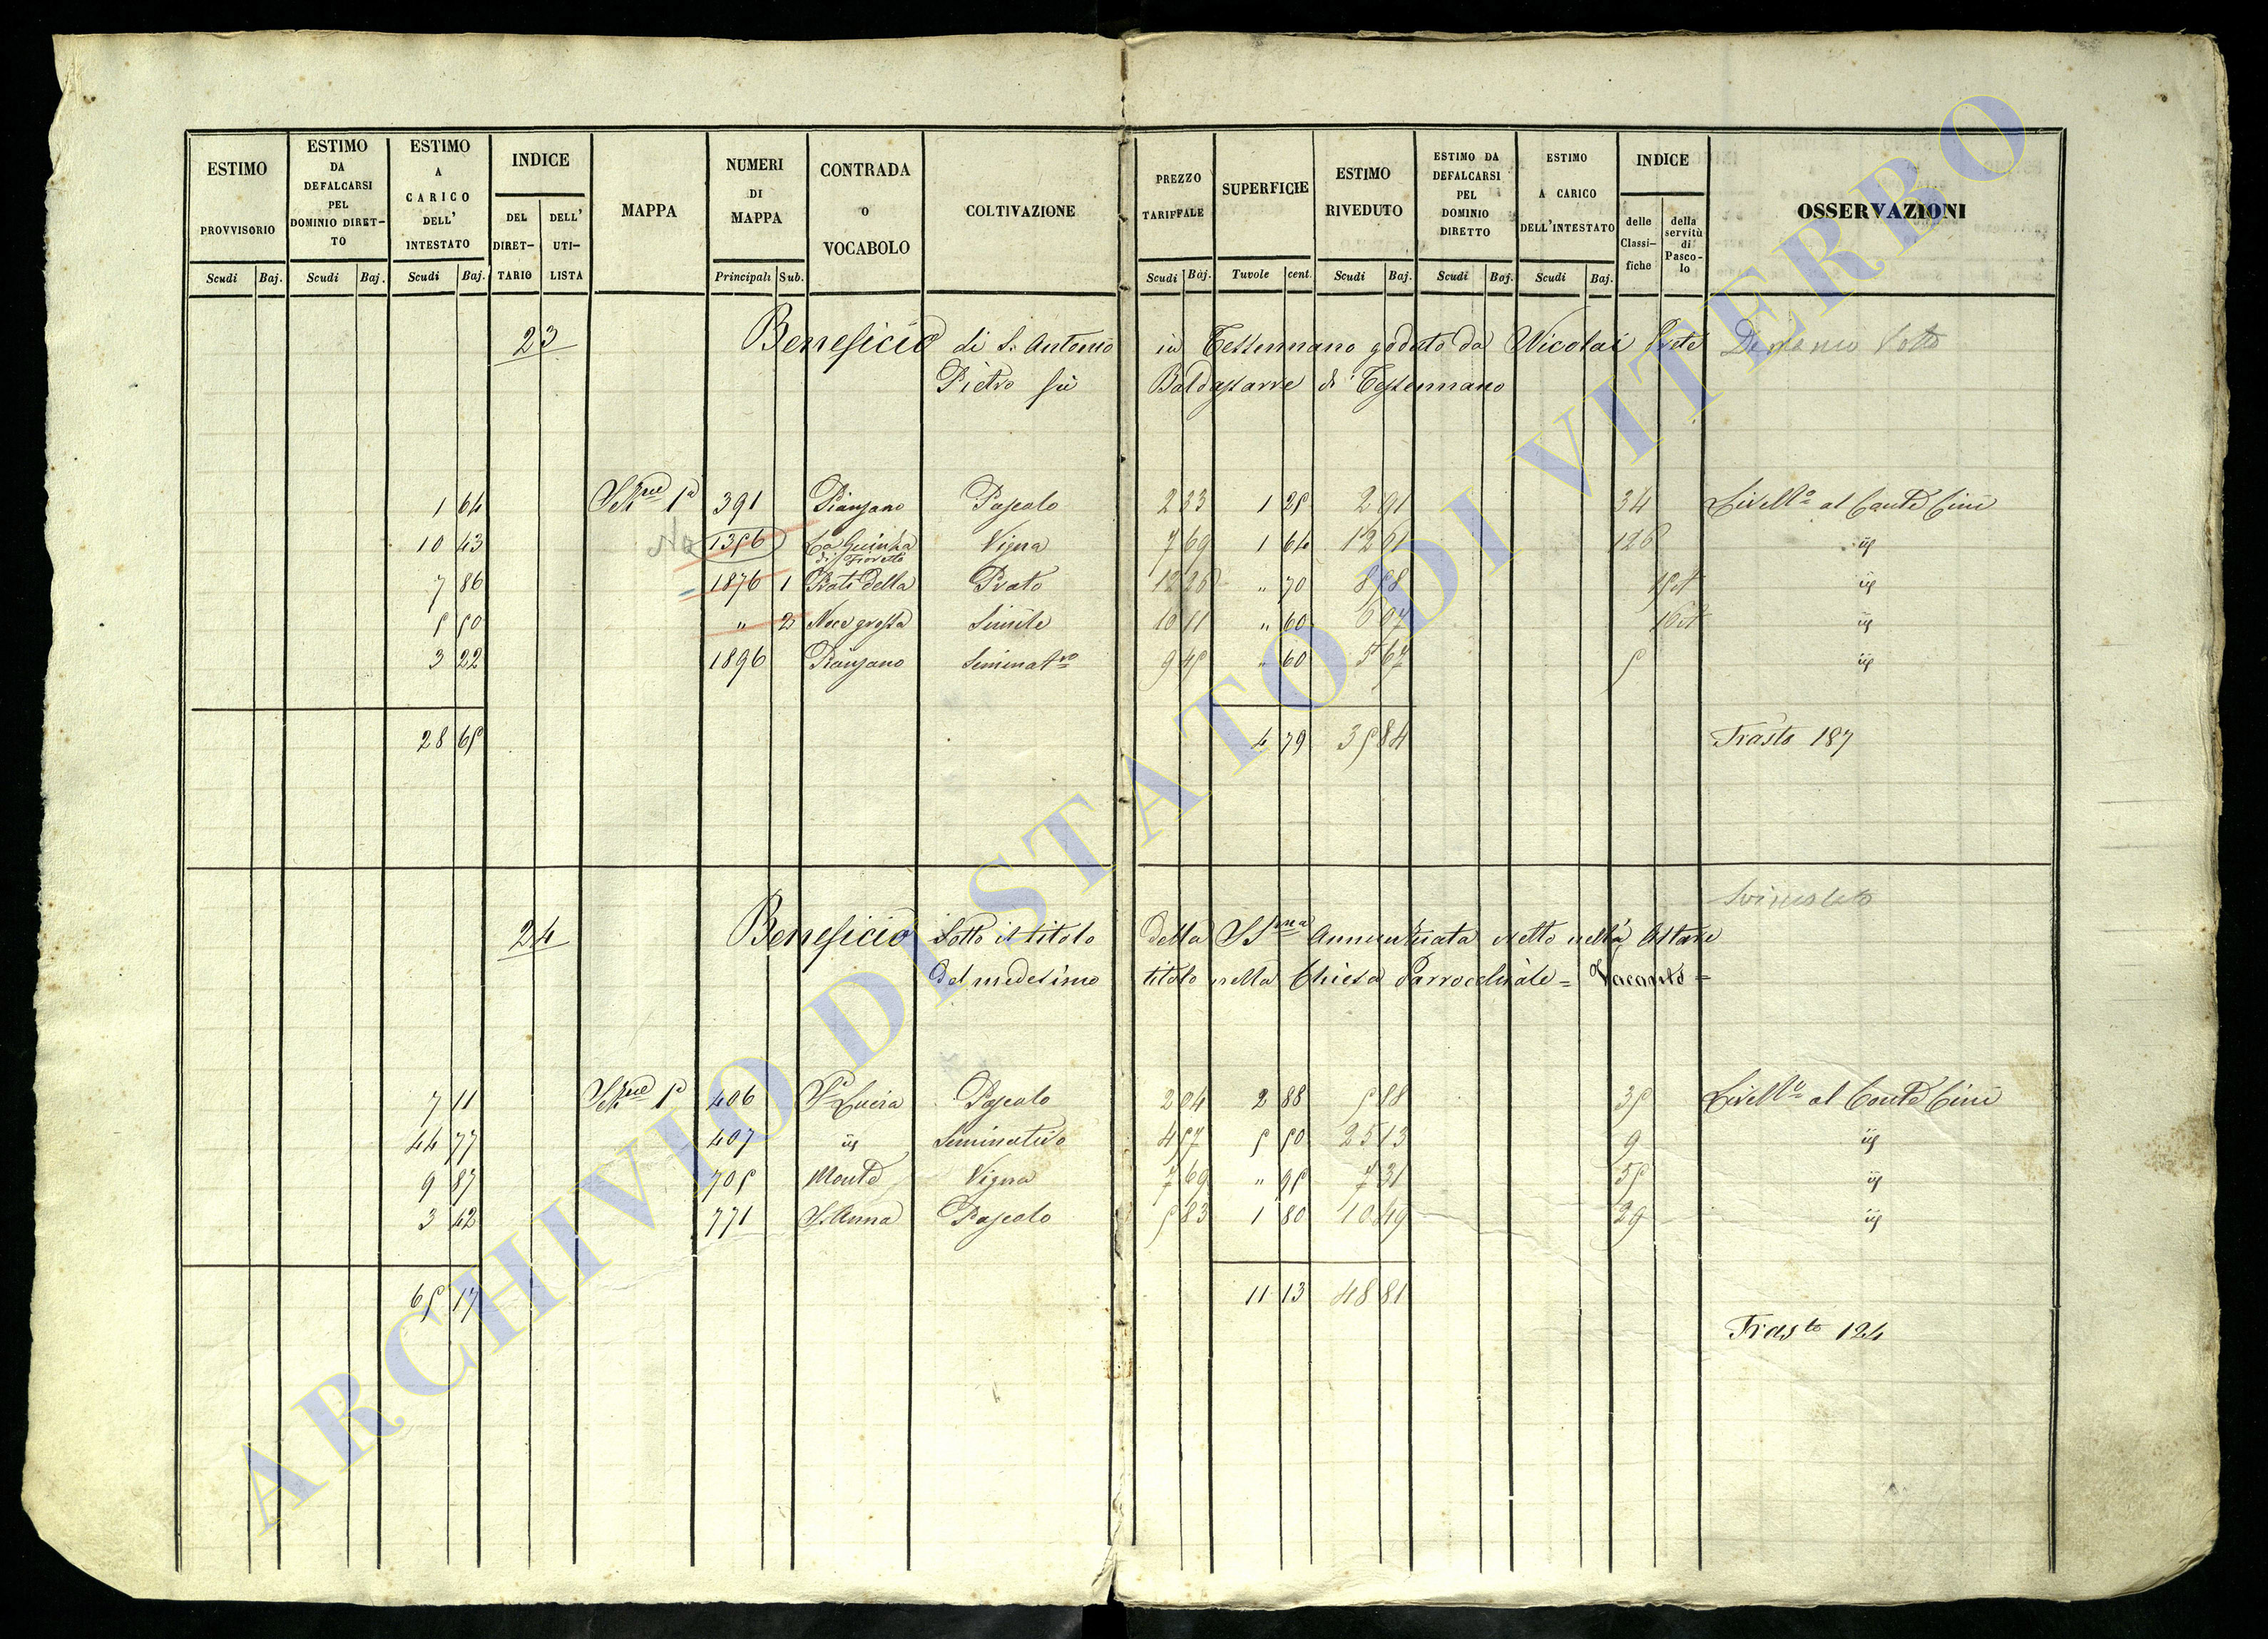 ESTIMO PROVVISORIO
ESTIMO DA DEFALCARSI PEL DOMINIO DIRETTO
ESTIMO A CARICO DELL' INTESTATO
INDICE
DEL DIRETTARIO
DELL' UTILISTA
MAPPA
NUMERI DI MAPPA
CONTRADA O VOCABOLO
COLTIVAZIONE
PREZZO TARIFFALE
SUPERFICIE
ESTIMO RIVEDUTO
ESTIMO DA DEFALCARSI PEL DOMINIO DIRETTO
ESTIMO A CARICO DELL'INTESTATO
INDICE
delle Classifiche
della servitù di Pascolo
OSSERVAZIONI
Scudi Baj. Scudi Baj. Scudi Baj. Principali Sub. Scudi Baj. Tavole cent. Scudi Baj. Scudi Baj. Scudi Baj.
23 Beneficio di S. Antonio in Tessennano goduto da Nicolai Prete
Pietro fù Baldassarre di Tessennano
1 64 Sez.ne 1a 391 Pianzano Pascolo 2 33 1 25 2 91 34 Livello al Conte Cini
10 43 No 1356 Vigna 7 69 1 64 12 61 126 iis
7 86 1876 1 Prati della Prato 12 26 " 70 8 58 iis
5 50 " 2 Noce grossa Simile 10 11 " 60 6 07 iis
3 22 1896 Pianzano Seminat.vo 9 45 " 60 5 67 5 iis
28 65 4 79 35 84 Trasto 187
24 Beneficio Sotto il titolo della SS.ma Annunziata eretto nell' Altare
del medesimo titolo nella Chiesa Parrocchiale = Vacante =
7 11 Sez.ne 1a 406 S.a Lucia Pascolo 2 04 2 88 5 88 35 Livello al Conte Cini
44 77 407 iis Seminativo 4 57 5 50 25 13 9 iis
9 87 705 Monte Vigna 7 69 " 95 7 31 55 iis
3 42 771 S. Anna Pascolo 5 83 1 80 10 49 29 iis
65 17 11 13 48 81
Trasto 124
ARCHIVIO DI STATO DI VITERBO